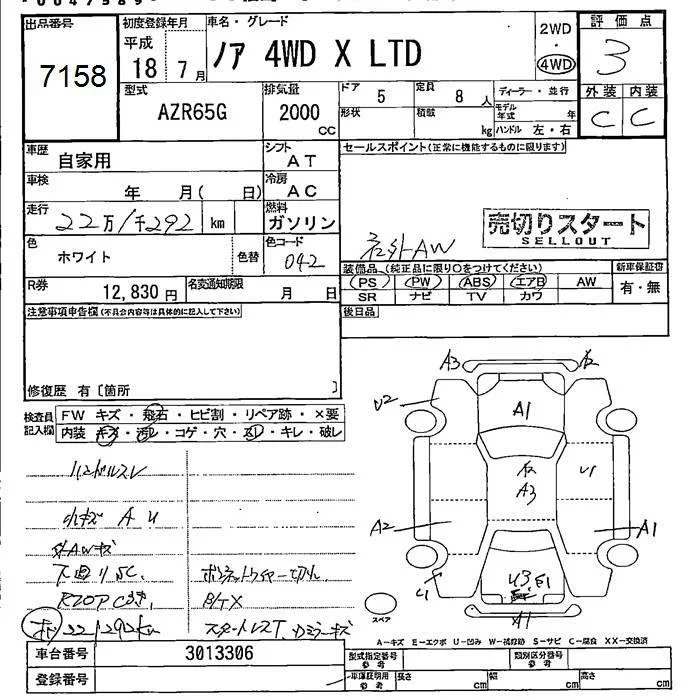 出品番号
7158
初度登録年月
平成
18 7 月
車名・グレード
ノア 4WD X LTD
2WD
・
4WD
評価点
3
外装 内装
C C
型式
AZR65G
排気量
2000
CC
ドア 5
定員 8 人
形状
積載 kg
ディーラー・並行
モデル年式 年
ハンドル 左・右
車歴
自家用
シフト
AT
セールスポイント(正常に機能するものに限ります)
車検
年 月( 日)
冷房
AC
走行
22万/千292 km
燃料
ガソリン
売切りスタート
SELLOUT
社外AW
色
ホワイト
色替
色コード
042
装備品(純正品に限り○をつけてください)
新車保証書
PS PW ABS エアB AW
有・無
SR ナビ TV カワ
R券
12,830 円
名変通知期限
月 日
後日品
注意事項申告欄(不具合内容等は具体的に記入して下さい)
修復歴 有〔箇所 〕
検査員記入欄
FW キズ・飛石・ヒビ割・リペア跡・×要
内装 キズ・汚レ・コゲ・穴・スレ・キレ・破レ
ハンドルスレ
小キズ A U
外AWキズ
下廻りSC.
ボンネットワイヤー切れ
スタートレスT
A3
A1
U2
A3
U1
A2
A1
U1
U3 E1
A1
スペア
A-キズ E-エクボ U-凹み W-補修跡 S-サビ C-腐食 XX-交換済
車台番号
3013306
型式指定番号
参考
類別区分番号
参考
登録番号
車庫証明用
参考
長さ cm
幅 cm
高さ cm